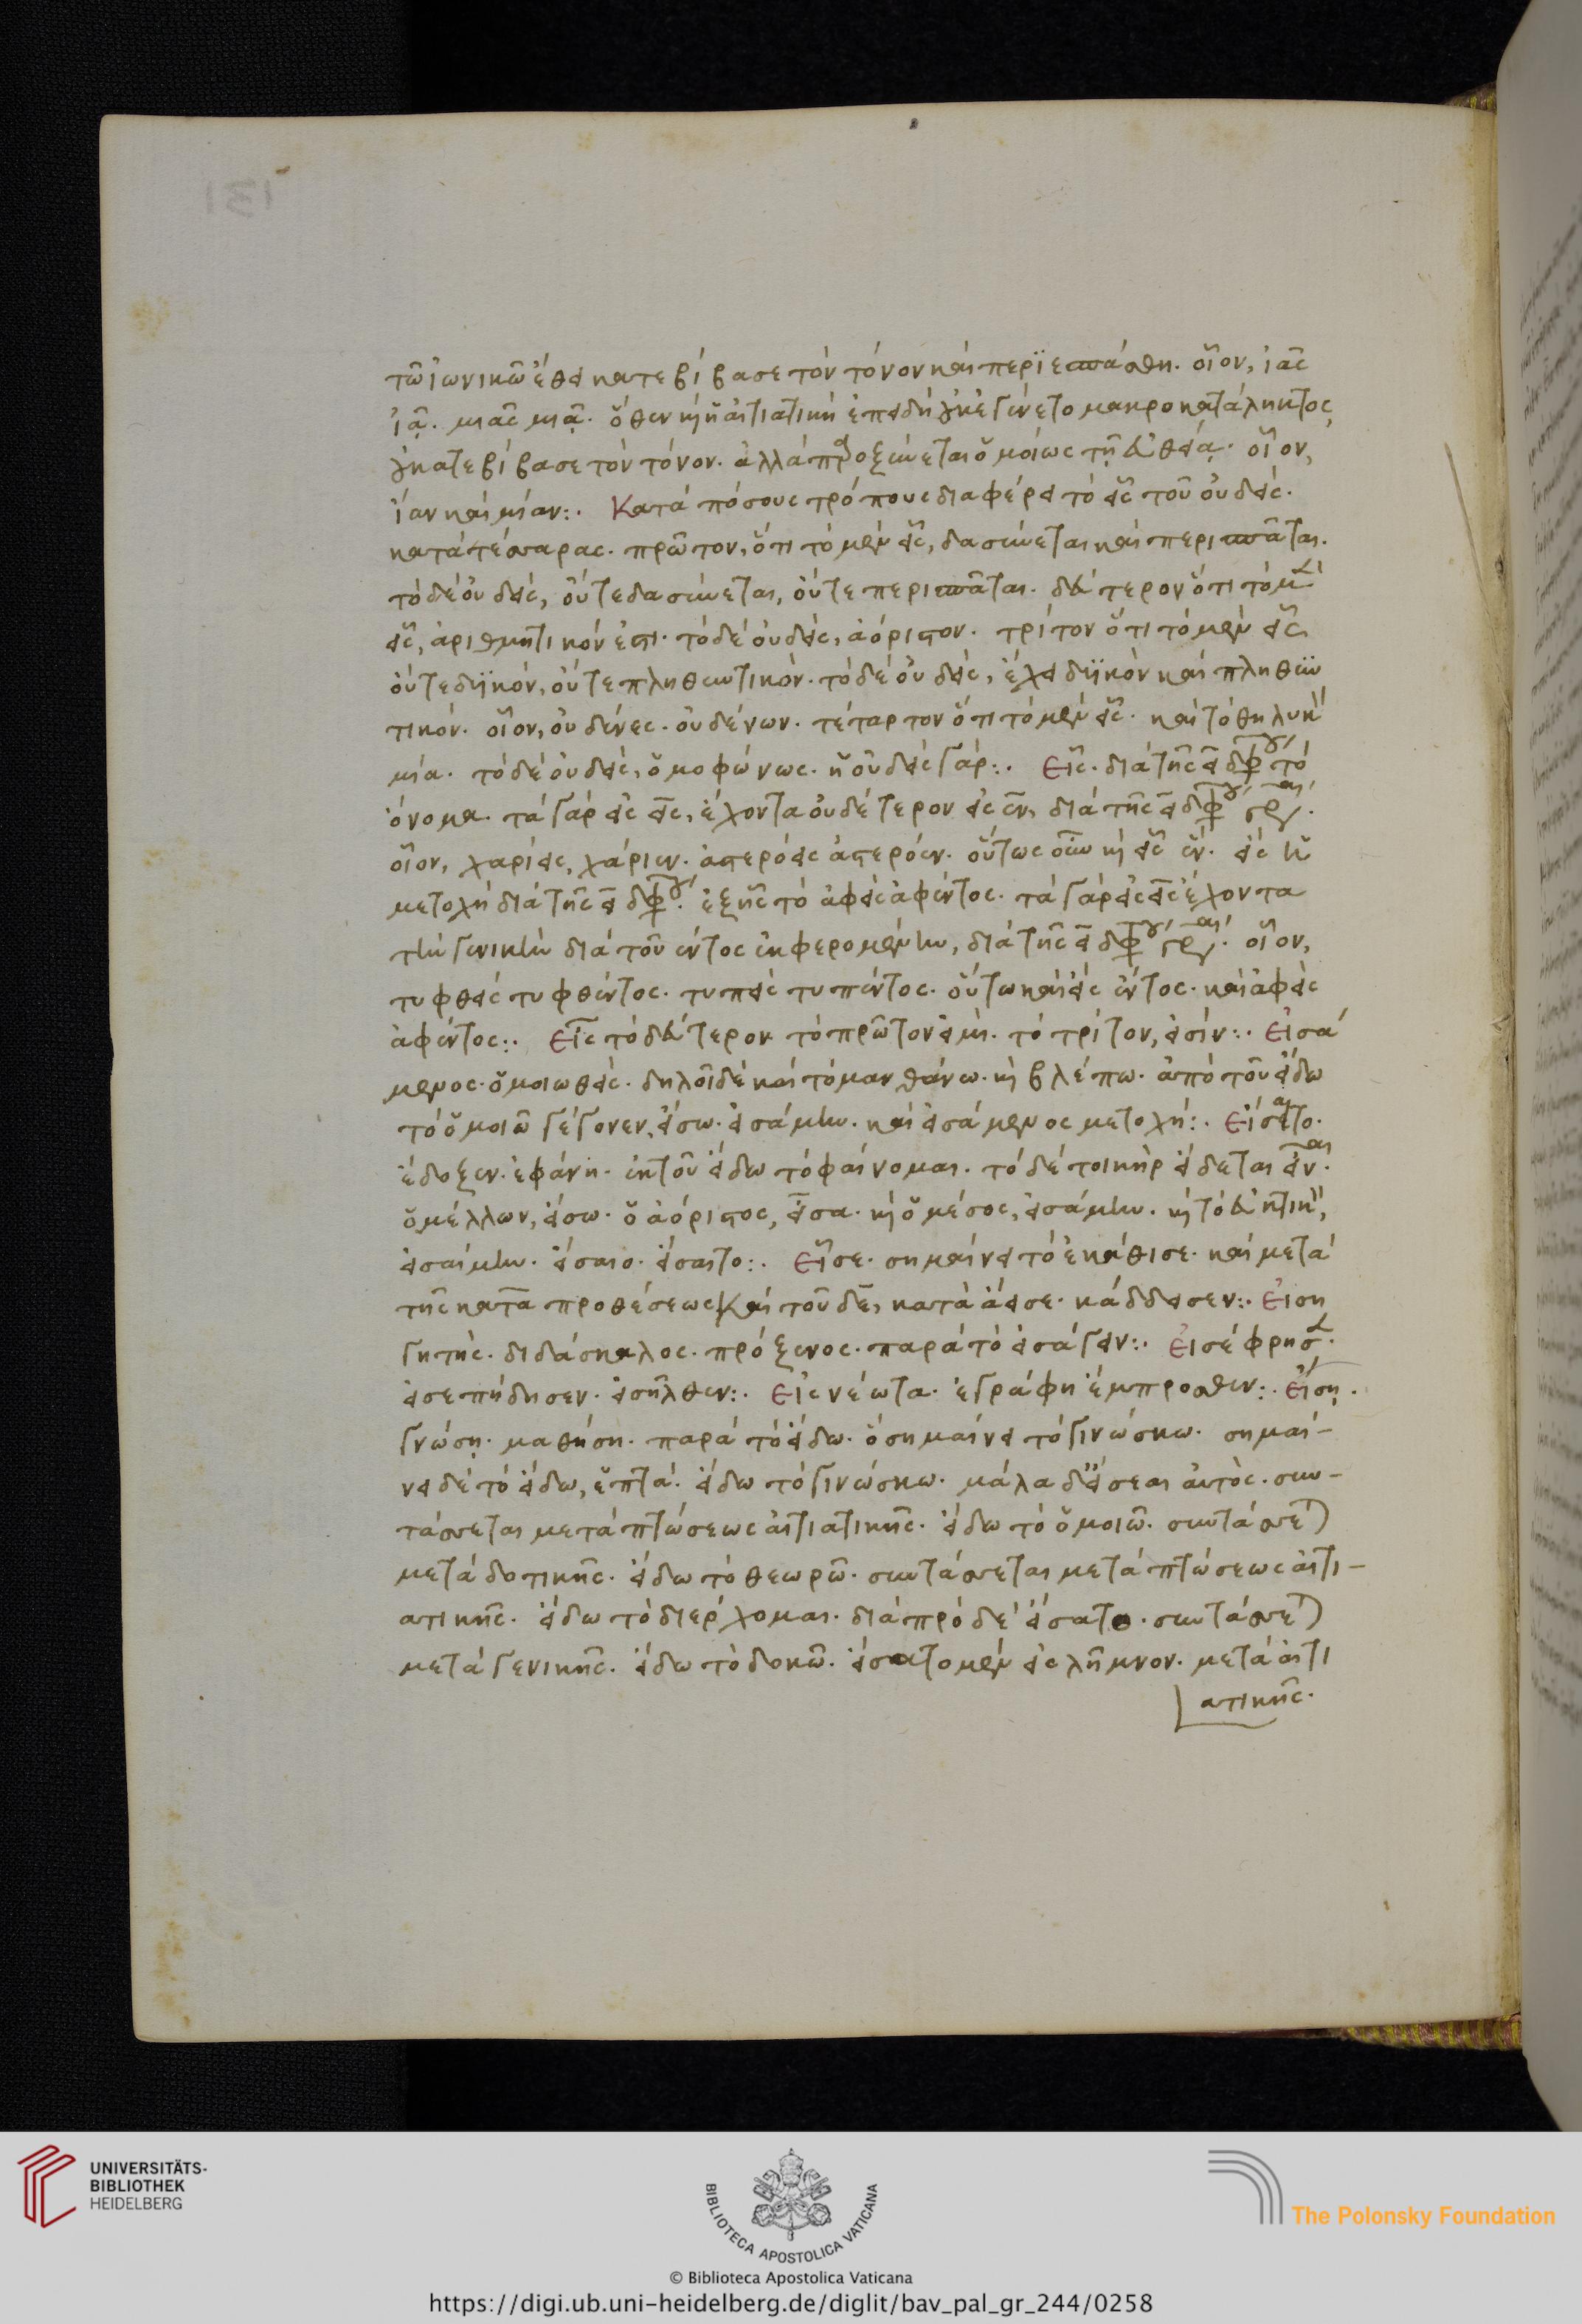 τῶ ἰωνικῶ ἔθει κατεβίβασε τὸν τόνον καὶ περιεσπάσθη. οἷον, ἰᾶς
ἰᾷ. μιᾶς μιᾷ. ὅθεν καὶ ἡ αἰτιατικὴ ἐπειδὴ οὐκ ἐγένετο μακροκατάληκτος,
οὐ κατεβίβασε τὸν τόνον. ἀλλὰ προξύνεται ὁμοίως τῆ εὐθείᾳ. οἷον,
ἴαν καὶ μίαν:. Κατὰ πόσους τρόπους διαφέρει τὸ εἷς τοῦ οὐδείς.
κατὰ τέσσαρας. πρῶτον, ὅτι τὸ μὲν εἷς, δασύνεται καὶ περισπᾶται.
τὸ δὲ οὐδείς, οὔτε δασύνεται, οὔτε περισπᾶται. δεύτερον ὅτι τὸ μὲν
εἷς, ἀριθμητικόν ἐστι. τὸ δὲ οὐδείς, ἀόριστον. τρίτον ὅτι τὸ μὲν εἷς
οὔτε δυϊκὸν, οὔτε πληθυντικόν. τὸ δὲ οὐδείς, ἔχει δυϊκὸν καὶ πληθυν
τικόν. οἷον, οὐδένες. οὐδένων. τέταρτον ὅτι τὸ μὲν εἷς. καὶ τὸ θηλυκὸν
μία. τὸ δὲ οὐδείς, ὁμοφώνως. ἡ οὐδεὶς γάρ:. Εἷς. διὰ τῆς ει διφθόγγου τὸ
ὄνομα. τὰ γὰρ εἰς εις, ἔχοντα οὐδέτερον εἰς εν, διὰ τῆς ει διφθόγγου γράφεται.
οἷον, χαρίεις, χάριεν. ἀστερόεις ἀστερόεν. οὕτως οὖν καὶ εἷς ἕν. εἵς ἡ
μετοχὴ διὰ τῆς ει διφθόγγου. ἐξ ἧς τὸ ἀφεὶς ἀφέντος. τὰ γὰρ εἰς εις ἔχοντα
τὴν γενικὴν διὰ τοῦ εντος ἐκφερομένην, διὰ τῆς ει διφθόγγου γράφεται. οἷον,
τυφθεὶς τυφθέντος. τυπεὶς τυπέντος. οὕτω καὶ εἷς ἕντος. καὶ ἀφεὶς
ἀφέντος:. Εἶς τὸ δεύτερον τὸ πρῶτον εἰμί. τὸ τρίτον, εἰσίν:. Εἰσά
μενος. ὁμοιωθείς. δηλοῖ δὲ καὶ τὸ μανθάνω. καὶ βλέπω. ἀπὸ τοῦ εἴδω
τὸ ὁμοιῶ γέγονεν, εἴσω. εἰσάμην. καὶ εἰσάμενος μετοχή:. Εἴσατο.
ἔδοξεν. ἐφάνη. ἐκ τοῦ εἴδω τὸ φαίνομαι. τὸ δέ τοι κὴρ εἴδεται εἶναι.
ὁ μέλλων, εἴσω. ὁ ἀόριστος, εἶσα. καὶ ὁ μέσος, εἰσάμην. καὶ τὸ εὐκτικὸν,
εἰσαίμην. εἴσαιο. εἴσαιτο:. Εἷσε. σημαίνει τὸ ἐκάθισε. καὶ μετὰ
τῆς κατα προθέσεως καὶ τοῦ δε, κατὰ εἷσε. κάδδεισεν:. Εἰση
γητής. διδάσκαλος. πρόξενος. παρὰ τὸ εἰσάγειν:. Εἰσέφρησεν.
εἰσεπήδησεν. εἰσῆλθεν:. Εἰς νέωτα. ἐγράφη ἔμπροσθεν:. Εἴσῃ.
γνώσῃ. μαθήσῃ. παρὰ τὸ εἴδω. ὃ σημαίνει τὸ γινώσκω. σημαί-
νει δὲ τὸ εἴδω, ἑπτά. εἴδω τὸ γινώσκω. μάλα δ' εἴσεαι αὐτός. συν-
τάσσεται μετὰ πτώσεως αἰτιατικῆς. εἴδω τὸ ὁμοιῶ. συντάσσεται
μετὰ δοτικῆς. εἴδω τὸ θεωρῶ. συντάσσεται μετὰ πτώσεως αἰτι-
ατικῆς. εἴδω τὸ διέρχομαι. διὰ πρὸ δὲ εἴσατο. συντάσσεται
μετὰ γενικῆς. εἴδω τὸ δοκῶ. εἴσατο μὲν εἰς λῆμνον. μετὰ αἰτι
ατικῆς.
131
UNIVERSITÄTS-
BIBLIOTHEK
HEIDELBERG
BIBLIOTECA APOSTOLICA VATICANA
The Polonsky Foundation
© Biblioteca Apostolica Vaticana
https://digi.ub.uni-heidelberg.de/diglit/bav_pal_gr_244/0258